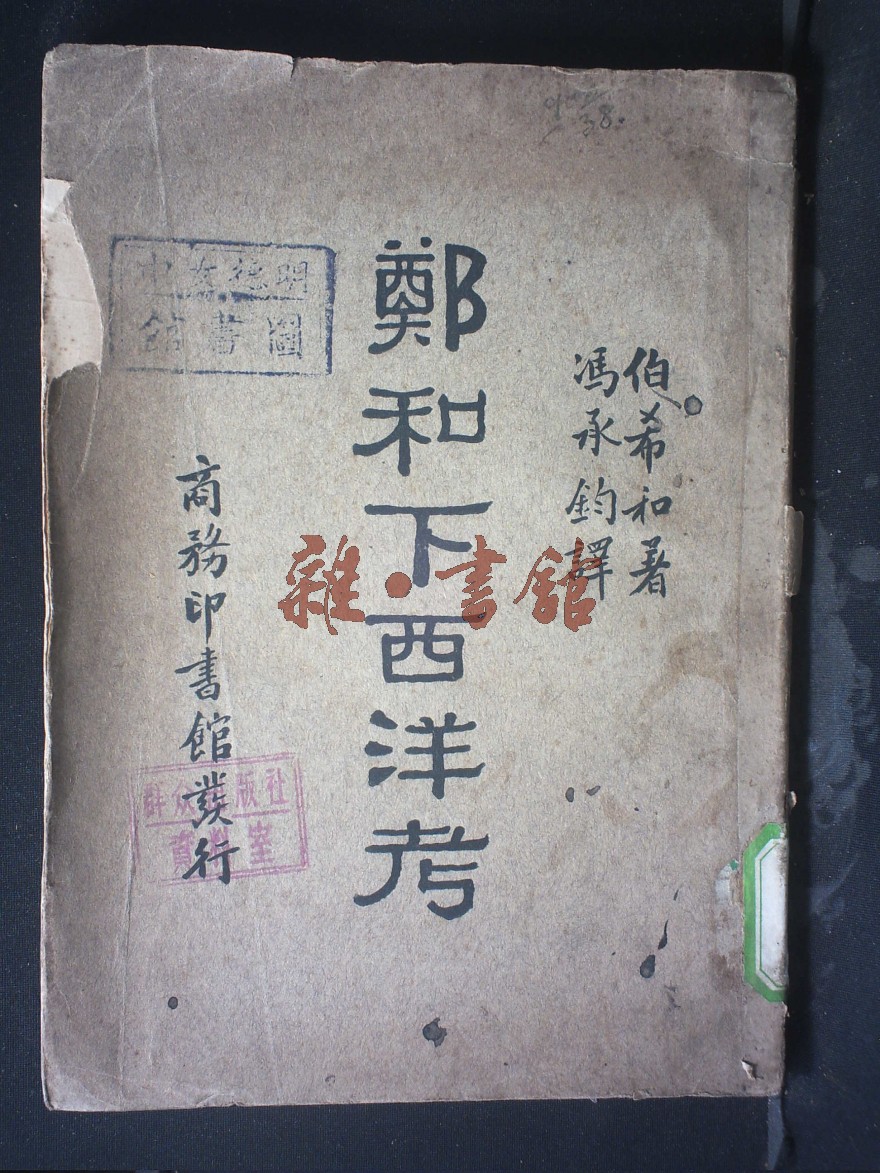 伯希和著
馮承鈞譯
鄭和下西洋考
商務印書館發行
明德女中
圖書館
群众出版社
資料室
雜·書館
38.